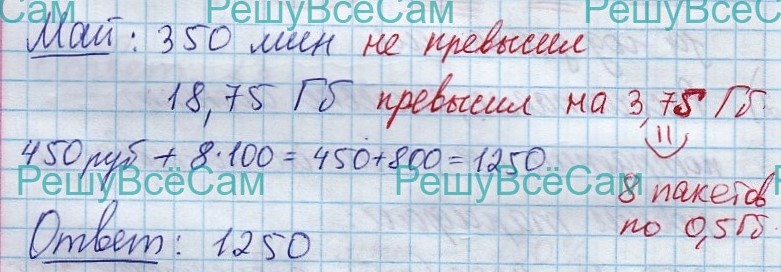 РешуВсёСам РешуВсёСам
Май: 350 мин не превысил
18,75 Гб превысил на 3,75 Гб.
=
450 руб + 8·100 = 450+800 = 1250
РешуВсёСам РешуВсёСам
8 пакетов
по 0,5Гб.
Ответ: 1250